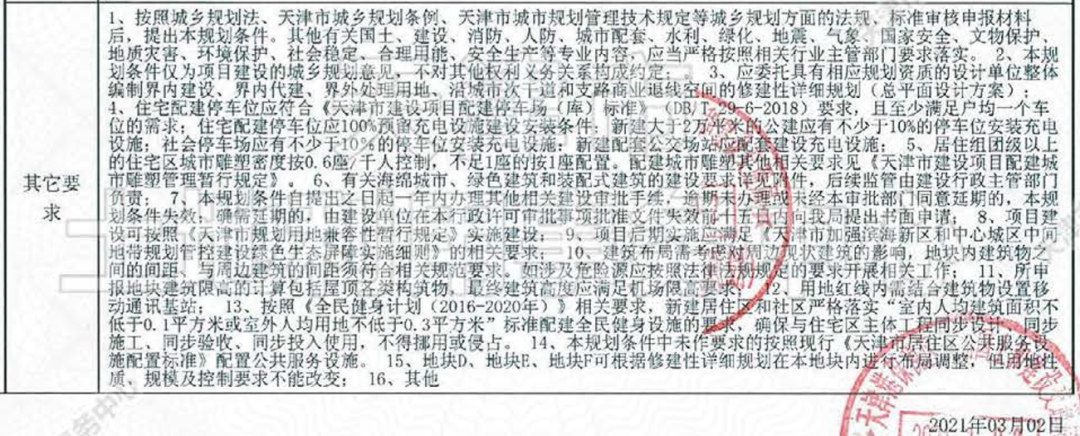 其它要求
1、按照城乡规划法、天津市城乡规划条例、天津市城市规划管理技术规定等城乡规划方面的法规、标准审核申报材料
后，提出本规划条件。其他有关国土、建设、消防、人防、城市配套、水利、绿化、地震、气象、国家安全、文物保护、
地质灾害、环境保护、社会稳定、合理用能、安全生产等专业内容，应当严格按照相关行业主管部门要求落实。 2、本规
划条件仅为项目建设的城乡规划意见，不对其他权利义务关系构成约定； 3、应委托具有相应规划资质的设计单位整体
编制界内建设、界内代建、界外处理用地、沿城市次干道和支路商业退线空间的修建性详细规划（总平面设计方案）；
4、住宅配建停车位应符合《天津市建设项目配建停车场（库）标准》（DB/T 29-6-2018）要求，且至少满足户均一个车
位的需求；住宅配建停车位应100%预留充电设施建设安装条件；新建大于2万平米的公建应有不少于10%的停车位安装充电
设施；社会停车场应有不少于10%的停车位安装充电设施；新建配套公交场站应配套建设充电设施； 5、居住组团级以上
的住宅区城市雕塑密度按0.6座/千人控制，不足1座的按1座配置。配建城市雕塑其他相关要求见《天津市建设项目配建城
市雕塑管理暂行规定》。 6、有关海绵城市、绿色建筑和装配式建筑的建设要求详见附件，后续监管由建设行政主管部门
负责； 7、本规划条件自提出之日起一年内办理其他相关建设审批手续，逾期未办理或未经本审批部门同意延期的，本规
划条件失效。确需延期的，由建设单位在本行政许可审批事项批准文件失效前十五日内向我局提出书面申请； 8、项目建
设可按照《天津市规划用地兼容性暂行规定》实施建设； 9、项目后期实施应满足《天津市加强滨海新区和中心城区中间
地带规划管控建设绿色生态屏障实施细则》的相关要求； 10、建筑布局需考虑对周边现状建筑的影响，地块内建筑物之
间的间距、与周边建筑的间距须符合相关规范要求。如涉及危险源应按照法律法规规定的要求开展相关工作； 11、所申
报地块建筑限高的计算包括屋顶各类构筑物，最终建筑高度应满足机场限高要求； 12、用地红线内需结合建筑物设置移
动通讯基站； 13、按照《全民健身计划（2016-2020年）》相关要求，新建居住区和社区严格落实“室内人均建筑面积不
低于0.1平方米或室外人均用地不低于0.3平方米”标准配建全民健身设施的要求，确保与住宅区主体工程同步设计、同步
施工、同步验收、同步投入使用，不得挪用或侵占。 14、本规划条件中未作要求的按照现行《天津市居住区公共服务设
施配置标准》配置公共服务设施。 15、地块D、地块E、地块F可根据修建性详细规划在本地块内进行布局调整，但用地性
质、规模及控制要求不能改变； 16、其他
2021年03月02日